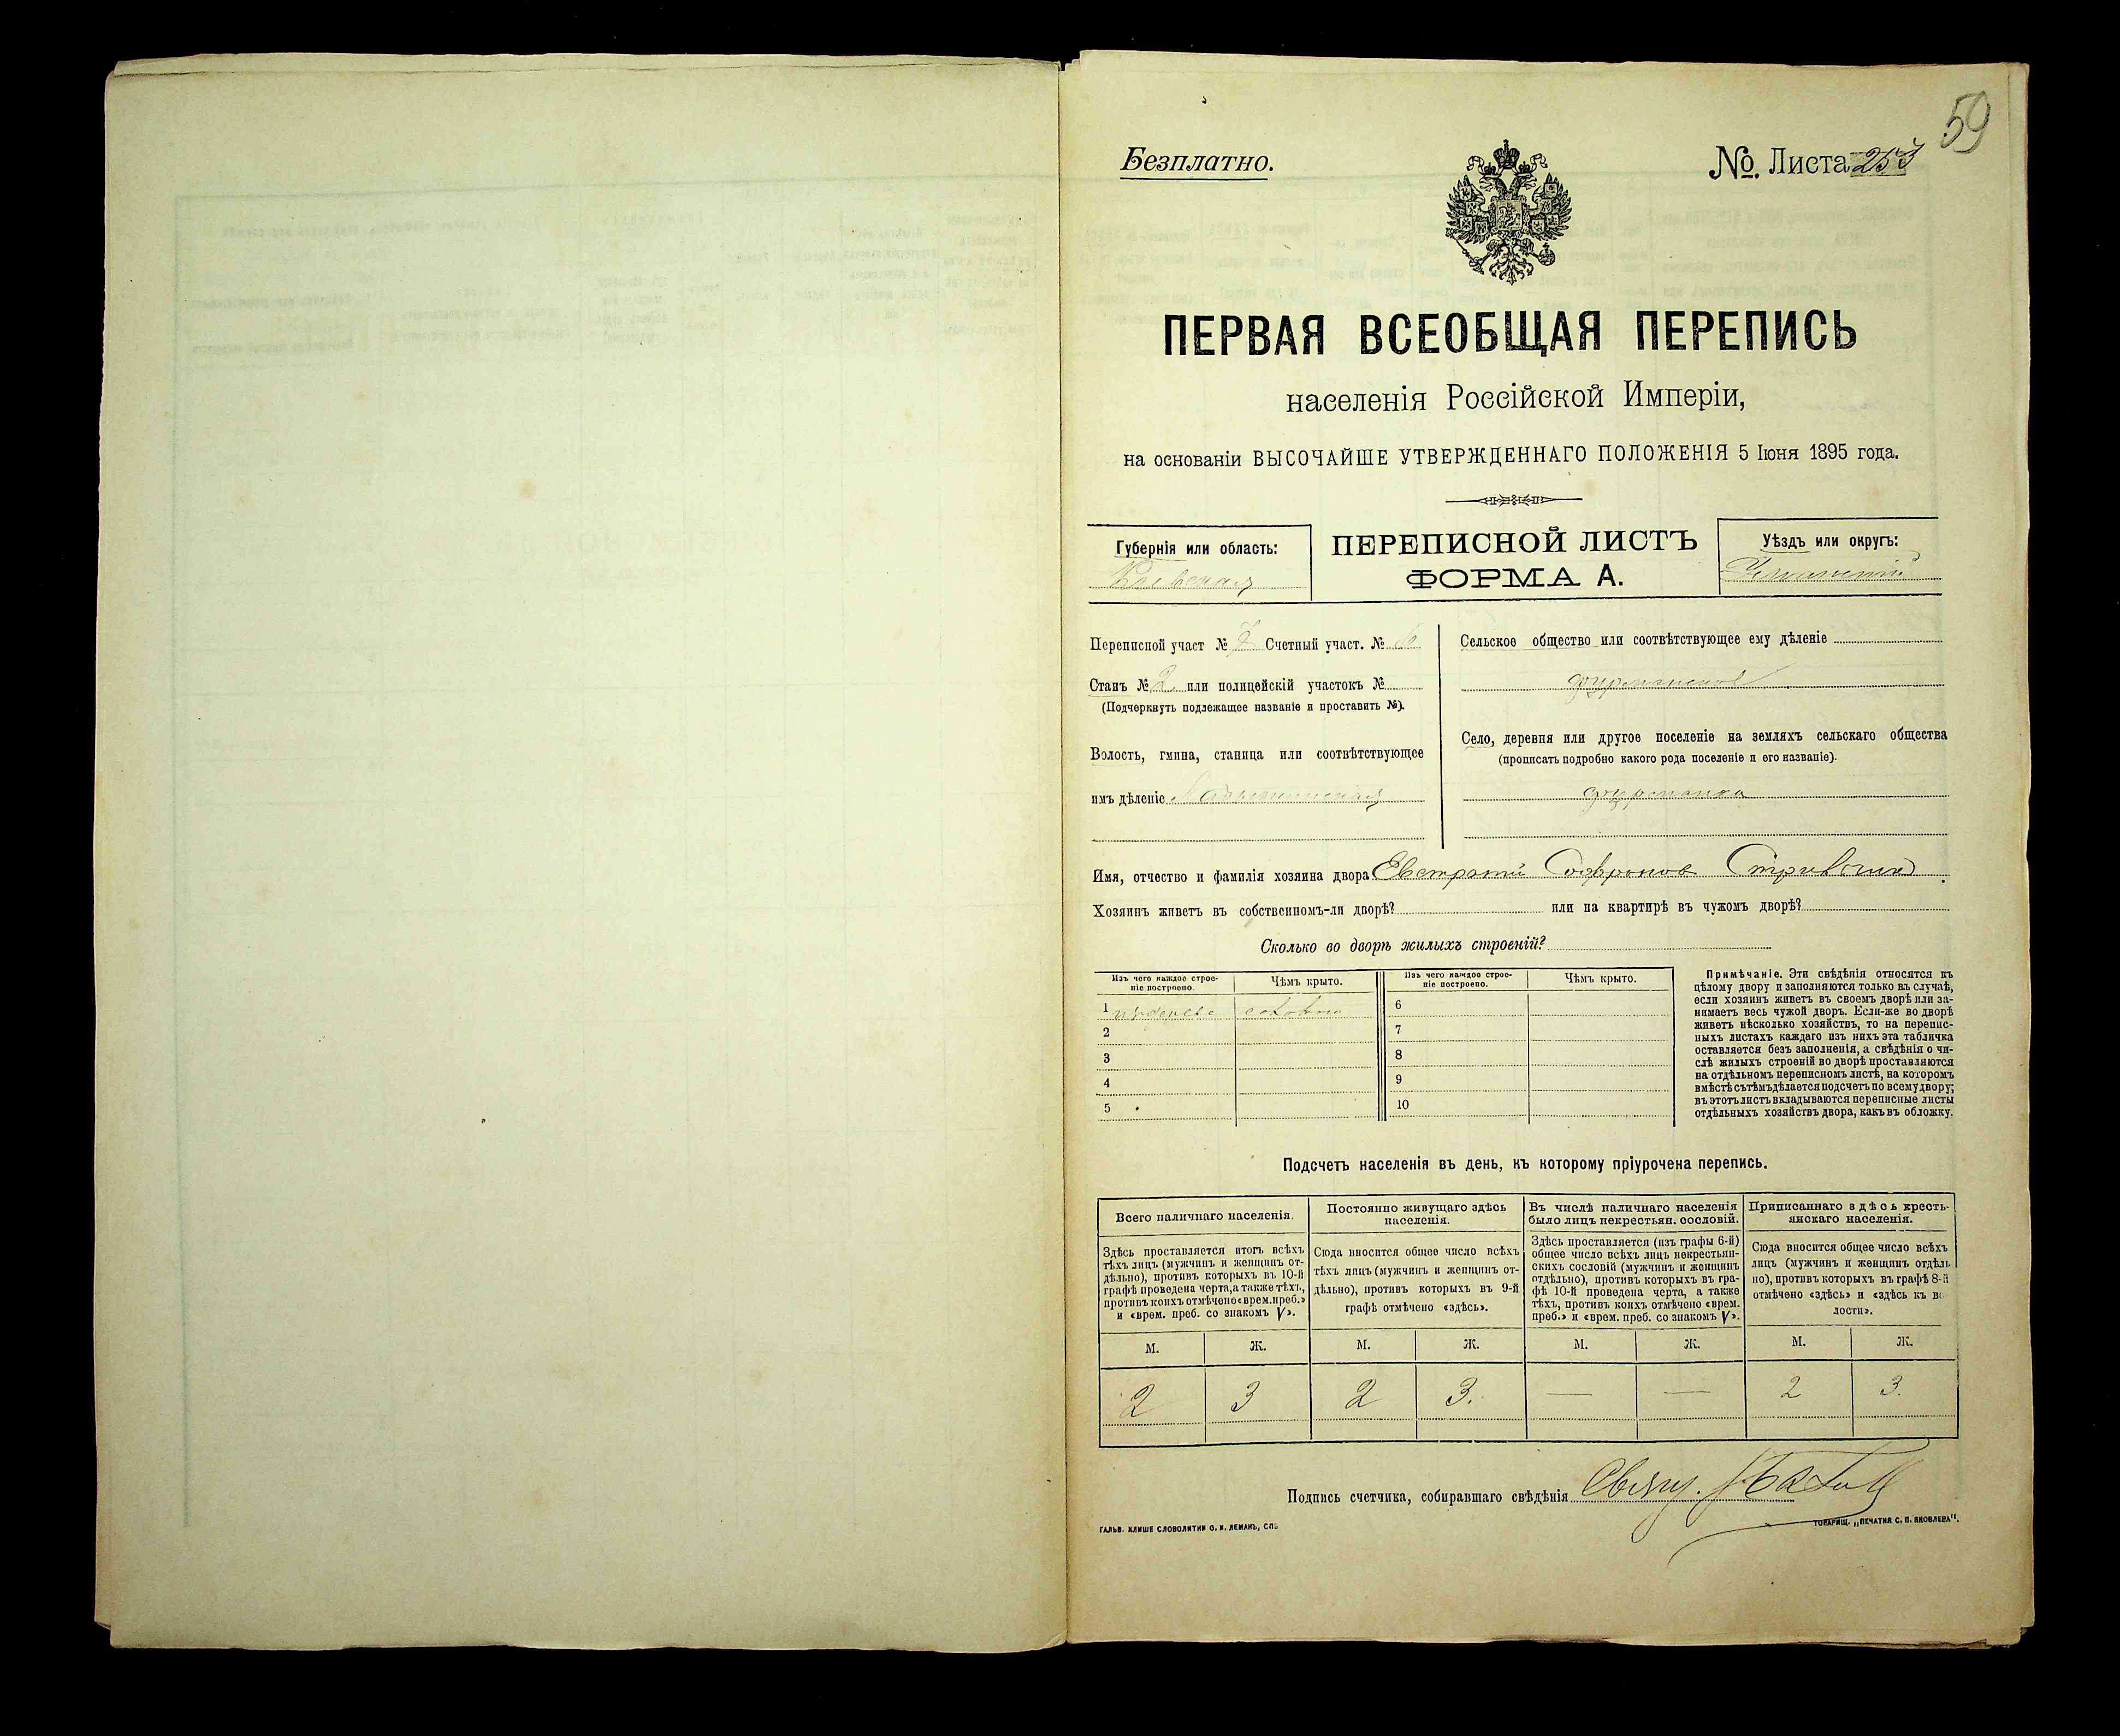 59
Безплатно.
№. Листа 253
ПЕРВАЯ ВСЕОБЩАЯ ПЕРЕПИСЬ
населенія Россійской Имперіи,
на основаніи ВЫСОЧАЙШЕ УТВЕРЖДЕННАГО ПОЛОЖЕНІЯ 5 Іюня 1895 года.
Губернія или область:
Кіевская
ПЕРЕПИСНОЙ ЛИСТЪ
ФОРМА А.
Уѣздъ или округъ:
Уманскій
Переписной участ № 7 Счетный участ. №
Станъ № 2 или полицейскій участокъ №
(Подчеркнуть подлежащее названіе и проставить №).
Волость, гмина, станица или соотвѣтствующее
имъ дѣленіе
Сельское общество или соотвѣтствующее ему дѣленіе
фурманское
Село, деревня или другое поселеніе на земляхъ сельскаго общества
(прописать подробно какого рода поселеніе и его названіе).
фурманка
Имя, отчество и фамилія хозяина двора Евстратій Софронов
Хозяинъ живетъ въ собственномъ-ли дворѣ? или на квартирѣ въ чужомъ дворѣ?
Сколько во дворѣ жилыхъ строеній?
Изъ чего каждое строе-
ніе построено.
Чѣмъ крыто.
Изъ чего каждое строе-
ніе построено.
Чѣмъ крыто.
1
2
3
4
5
6
7
8
9
10
Примѣчаніе. Эти свѣдѣнія относятся къ
цѣлому двору и заполняются только въ случаѣ,
если хозяинъ живетъ въ своемъ дворѣ или за-
нимаетъ весь чужой дворъ. Если-же во дворѣ
живетъ нѣсколько хозяйствъ, то на перепис-
ныхъ листахъ каждаго изъ нихъ эта табличка
оставляется безъ заполненія, а свѣдѣнія о чи-
слѣ жилыхъ строеній во дворѣ проставляются
на отдѣльномъ переписномъ листѣ, на которомъ
вмѣстѣ съ тѣмъ дѣлается подсчетъ по всему двору;
въ этотъ листъ вкладываются переписные листы
отдѣльныхъ хозяйствъ двора, какъ въ обложку.
Подсчетъ населенія въ день, къ которому пріурочена перепись.
Всего наличнаго населенія.
Здѣсь проставляется итогъ всѣхъ
тѣхъ лицъ (мужчинъ и женщинъ от-
дѣльно), противъ которыхъ въ 10-й
графѣ проведена черта, а также тѣхъ,
противъ коихъ отмѣчено «врем. преб.»
и «врем. преб. со знакомъ V».
Постоянно живущаго здѣсь
населенія.
Сюда вносится общее число всѣхъ
тѣхъ лицъ (мужчинъ и женщинъ от-
дѣльно), противъ которыхъ въ 9-й
графѣ отмѣчено «здѣсь».
Въ числѣ наличнаго населенія
было лицъ некрестьян. сословій.
Здѣсь проставляется (изъ графы 6-й)
общее число всѣхъ лицъ некрестьян-
скихъ сословій (мужчинъ и женщинъ
отдѣльно), противъ которыхъ въ гра-
фѣ 10-й проведена черта, а также
тѣхъ, противъ коихъ отмѣчено «врем.
преб.» и «врем. преб. со знакомъ V».
Приписаннаго здѣсь кресть-
янскаго населенія.
Сюда вносится общее число всѣхъ
лицъ (мужчинъ и женщинъ отдѣль
но), противъ которыхъ въ графѣ 8-й
отмѣчено «здѣсь» и «здѣсь къ во
лости».
М. Ж. М. Ж. М. Ж. М. Ж.
2 3 2 3. — — 2 3.
Подпись счетчика, собиравшаго свѣдѣнія Свящ.
ГАЛЬВ. КЛИШЕ СЛОВОЛИТНИ О. И. ЛЕМАНЪ, СПБ
ТОВАРИЩ. „ПЕЧАТНЯ С. П. ЯКОВЛЕВА".